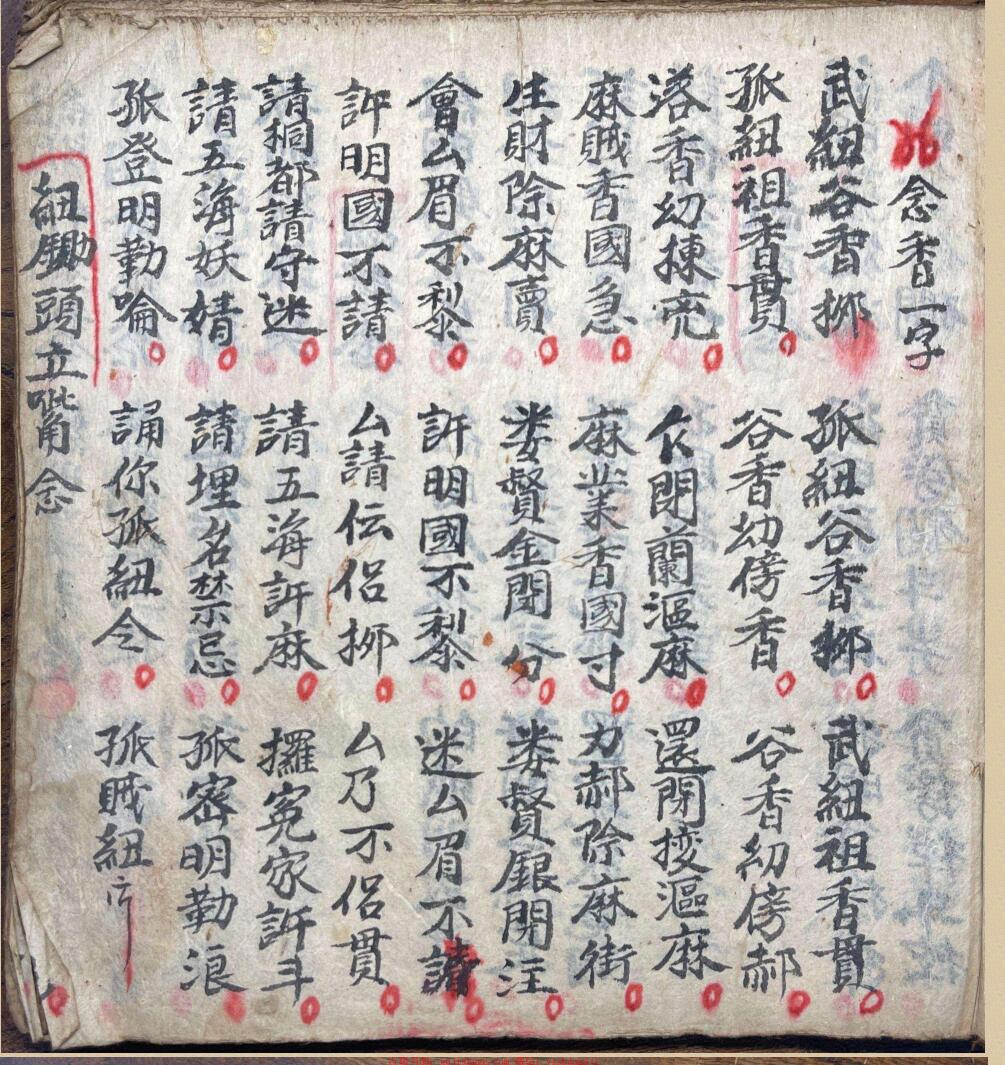 念香一字
武紐谷香挷 孤紐谷香挷 武紐祖香貫
孤紐祖香貫 谷香幼傍香 谷香幼傍郝
落香幼揀亮 閉蘭漚麻 還閉挼漚麻
麻賊香國急 麻業香國寸 力郝除麻街
生財除麻賣 娄賢金開分 娄賢銀開注
會厶眉不黎 許明國不黎 迷厶眉不請
許明國不請 厶請伝侣挷 厶乃不侣貫
請桐都請守迷 請五海許麻 攞冤家許斗
請五海妖婧 請埋名禁忌 孤密明勤浪
孤登明勤唥 誦你孤紐令 孤賊紐
鋤頭立嘴念